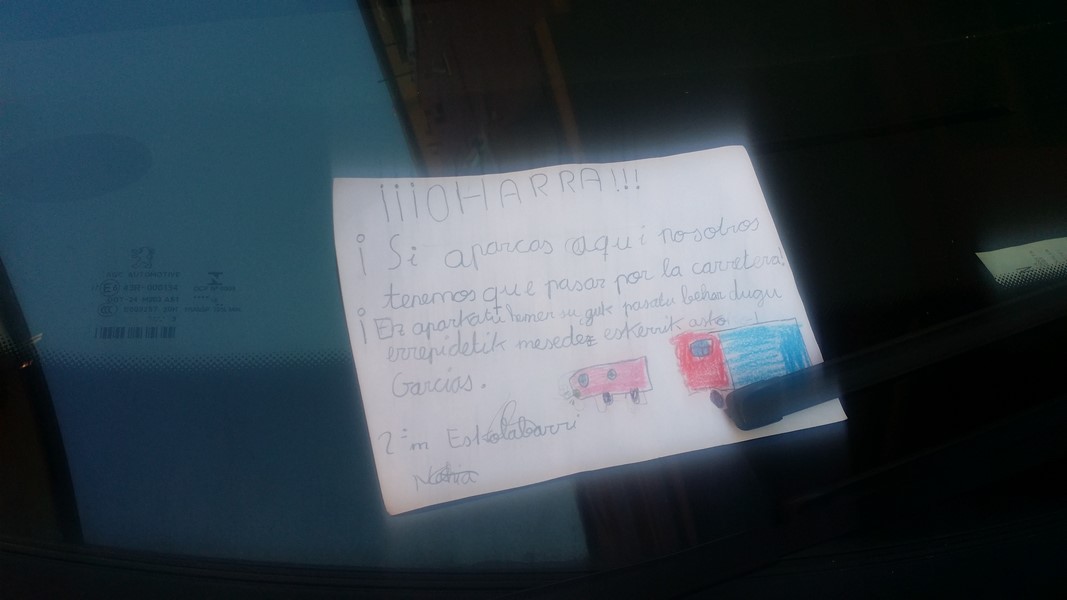 ¡¡¡OHARRA!!!
¡ Si aparcas aquí nosotros
tenemos que pasar por la carretera!
¡ Ez aparkatu hemen guk pasatu behar dugu
errepidetik mesedez eskerrik asko !
Garcias.
2ºm Eskolabarri
Nahia